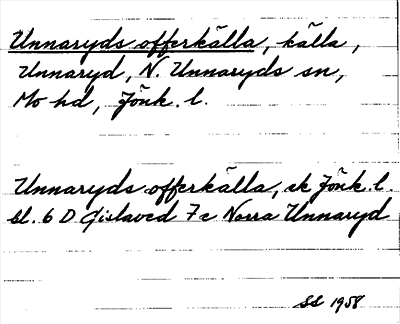 Unnaryds offerkälla, källa,
Unnaryd, N. Unnaryds sn,
Mo hd, Jönk. l.
Unnaryds offerkälla, ek Jönk. l.
bl. 6 D Gislaved 7 c Norra Unnaryd
SS 1958